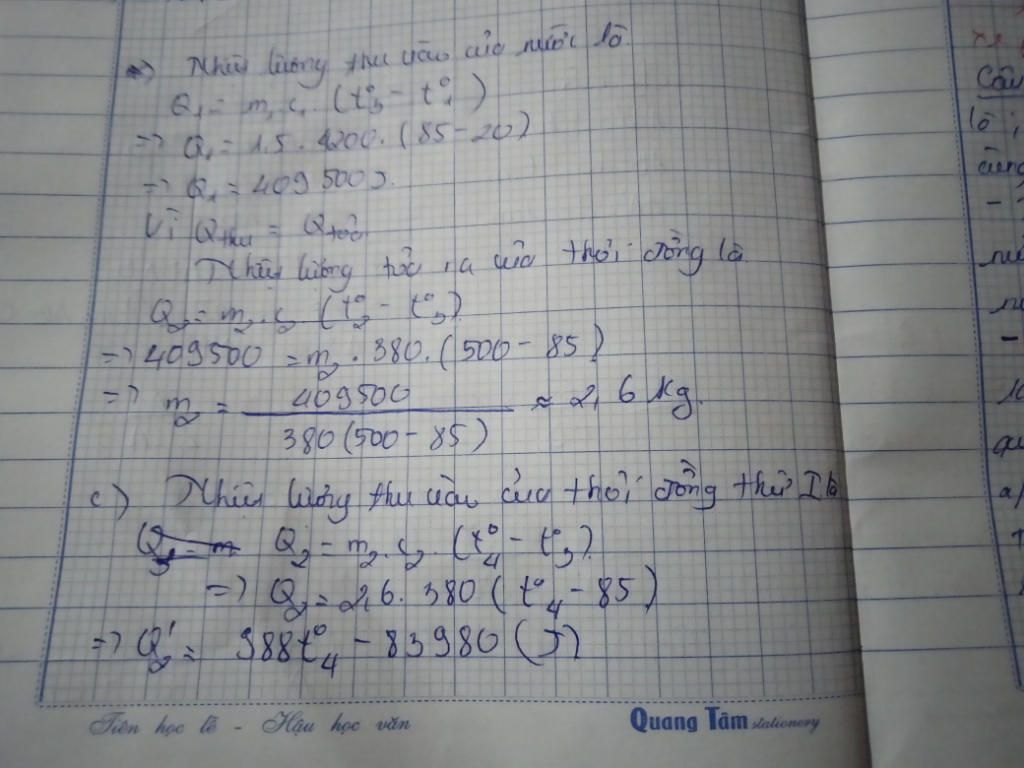 => Nhiệt lượng thu vào của nước là
Q₁ = m₁ c₁. (t°₃ - t°₁)
=> Q₁ = 1,5. 4200. (85-20)
=> Q₁ = 409 500 J.
Vì Q thu = Q tỏa
Nhiệt lượng tỏa ra của thỏi đồng là
Q₂ = m₂. c₂ (t°₂ - t°₃)
=> 409500 = m₂. 380. (500 - 85)
=> m₂ = 409500 / 380(500-85) ≈ 2,6 kg.
c) Nhiệt lượng thu vào của thỏi đồng thứ I là
Q₂ = m₂. c₂. (t°₄ - t°₃).
=> Q₂ = 2,6. 380 (t°₄ - 85)
=> Q₂' = 988t°₄ - 83980 (J)
Tiên học lễ - Hậu học văn
Quang Tâm stationery
Câu